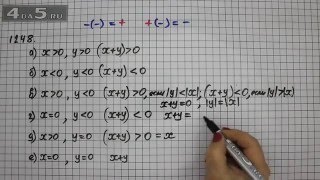 4DA5.RU
-(-) = +  +(-) = -
1248.
а) x>0, y>0 (x+y)>0
б) x<0, y<0 (x+y)<0
в) x>0, y<0 (x+y)>0, если |y|<|x|; (x+y)<0, если |y|>|x|
x+y=0, |y|=|x|
г) x=0, y<0 (x+y)<0 x+y=
д) x>0, y=0 (x+y)>0 =x
е) x=0, y=0 x+y